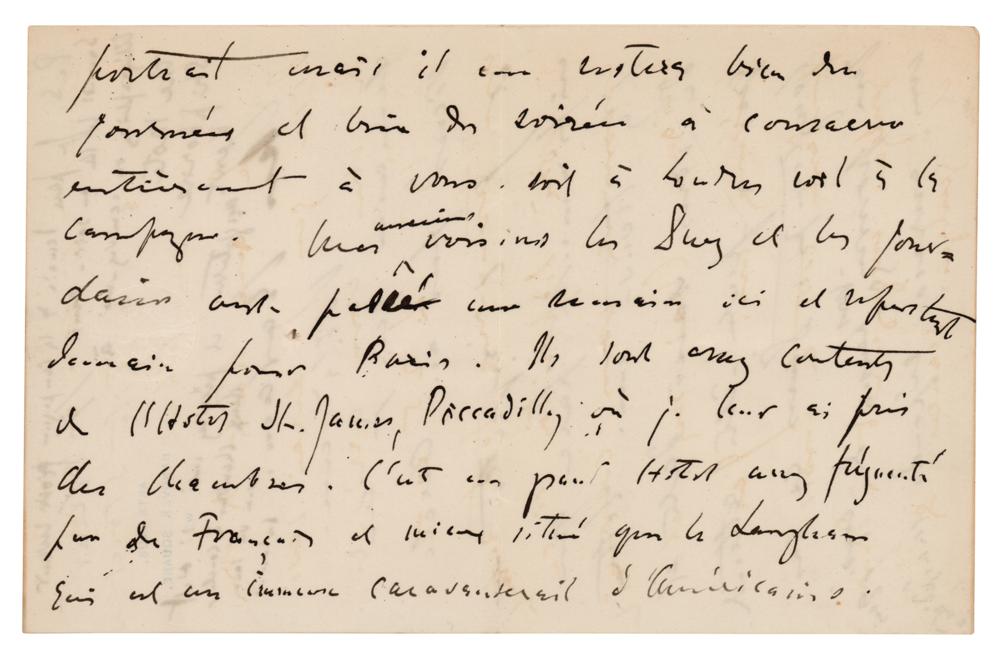 portrait mais il me restera bien des
journées et bien des soirées à consacrer
entièrement à vous. soit à Londres soit à la
campagne. Mes anciens voisins les Duez et les Jour-
dain ont passé une semaine ici et repartent
demain pour Paris. Ils sont assez contents
de l'Hôtel St. James, Piccadilly où je leur ai pris
des chambres. C'est un grand Hôtel assez fréquenté
par des Français et mieux situé que le Langham
qui est un immense caravansérail d'Américains.